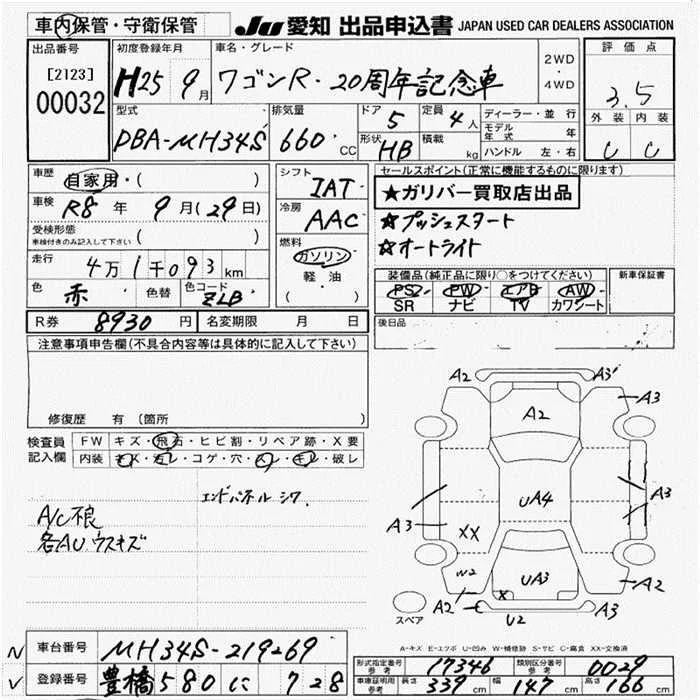 車内保管・守衛保管
JU 愛知 出品申込書 JAPAN USED CAR DEALERS ASSOCIATION
出品番号
[2123]
00032
初度登録年月
H25 9月
車名・グレード
ワゴンR・20周年記念車
2WD
・
4WD
評価点
3.5
外装 内装
C C
型式
DBA-MH34S
排気量
660 CC
ドア 5
形状 HB
定員 4人
積載 kg
ディーラー・並行
モデル年式 年
ハンドル 左・右
車歴 自家用・( )
車検 R8年 9月(29日)
受検形態
車検付きのみ記入して下さい ( )
走行 4万1千093km
色 赤 色替 色コード ZLB
シフト
IAT
冷房
AAC
燃料
ガソリン
軽油
( )
セールスポイント(正常に機能するものに限ります)
★ガリバー買取店出品
☆プッシュスタート
☆オートライト
装備品(純正品に限り○をつけてください)
PS PW エアB AW
SR ナビ TV カワシート
新車保証書
後日品
R券 8930円 名変期限 月 日
注意事項申告欄(不具合内容等は具体的に記入して下さい)
修復歴 有(箇所 )
検査員記入欄
FW キズ・飛石・ヒビ割・リペア跡・X要
内装 キズ・汚レ・コゲ・穴・スレ・キレ・破レ
エンドパネル シワ
A/C不良
各AU ウスキズ
A2 A3
A2
A3
A3
UA4
A3
XX
W2
UA3
X
A2
U2
A3
A2
スペア
A-キズ E-エクボ U-凹み W-補修跡 S-サビ C-腐食 XX-交換済
N 車台番号 MH34S-219269
V 登録番号 豊橋580に728
形式指定番号 参考 17346
類別区分番号 参考 0029
車庫証明用 参考 長さ 339cm 幅 147cm 高さ 166cm